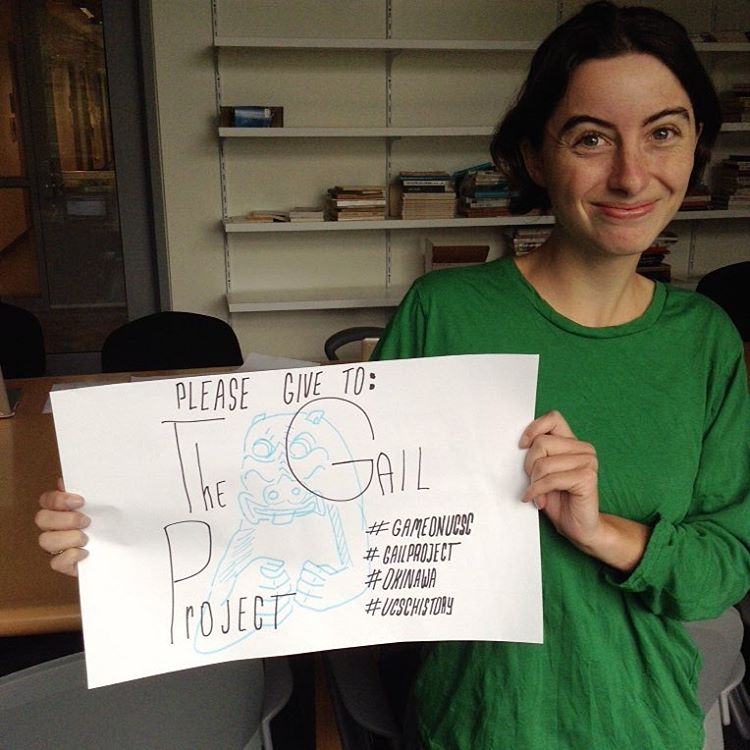 PLEASE GIVE TO:
The GAIL
PROJECT
#GAMEONUCSC
#GAILPROJECT
#OKINAWA
#UCSCHISTORY